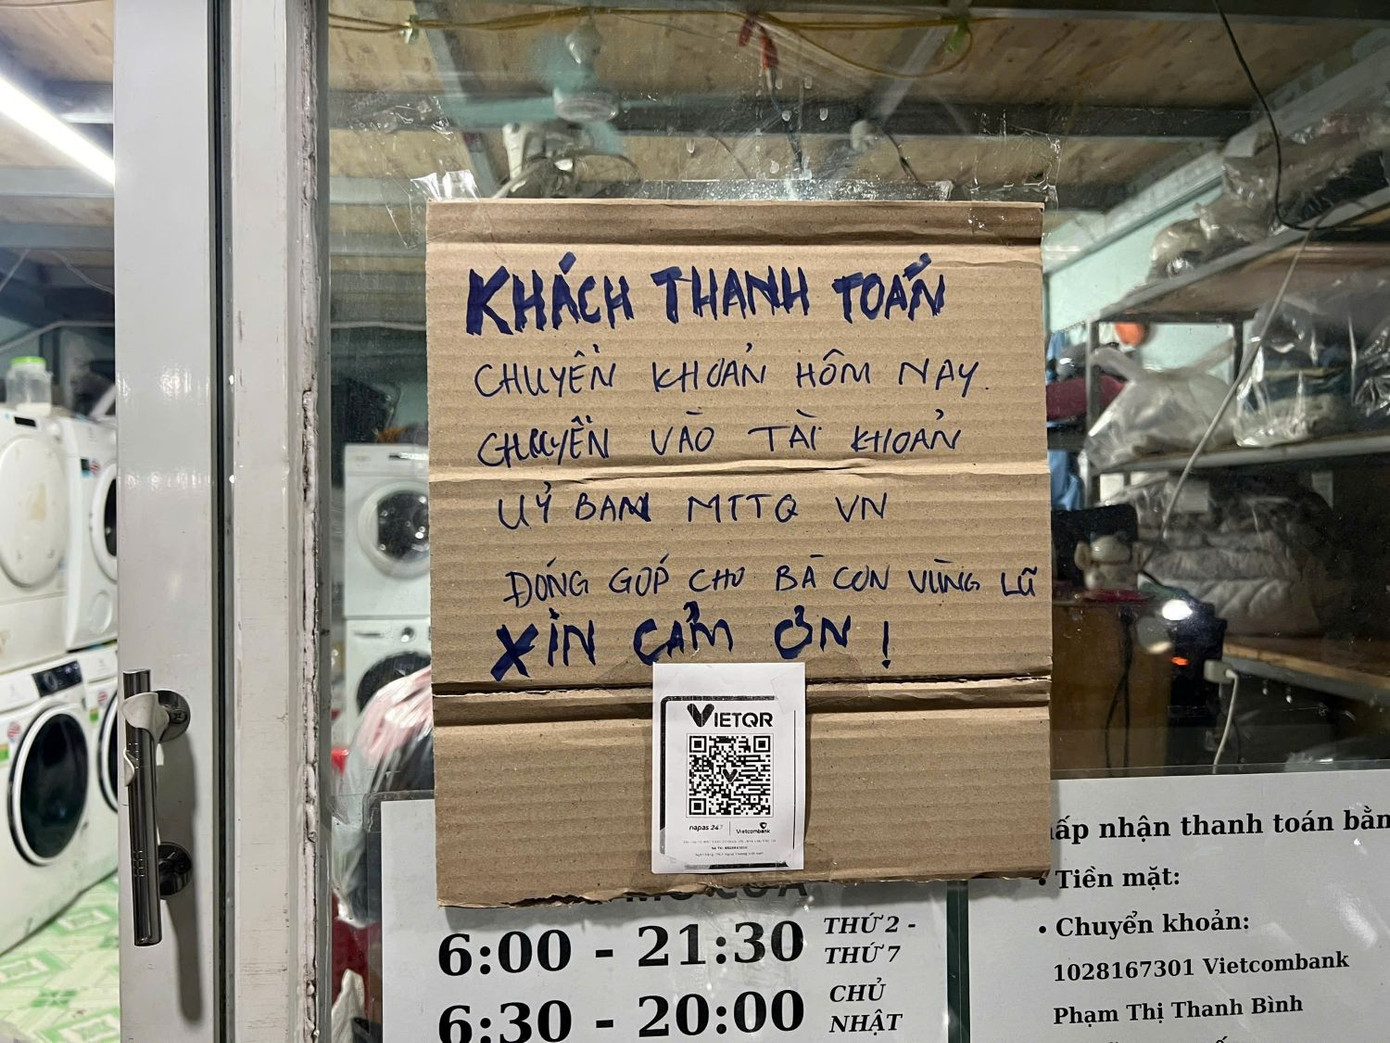 KHÁCH THANH TOÁN
CHUYỂN KHOẢN HÔM NAY.
CHUYỂN VÀO TÀI KHOẢN
UỶ BAN MTTQ VN
ĐÓNG GÓP CHO BÀ CON VÙNG LŨ
XIN CẢM ƠN !
VIETQR
napas 247
Vietcombank
6:00 - 21:30 THỨ 2 - THỨ 7
6:30 - 20:00 CHỦ NHẬT
ấp nhận thanh toán bằn
• Tiền mặt:
• Chuyển khoản:
1028167301 Vietcombank
Phạm Thị Thanh Bình